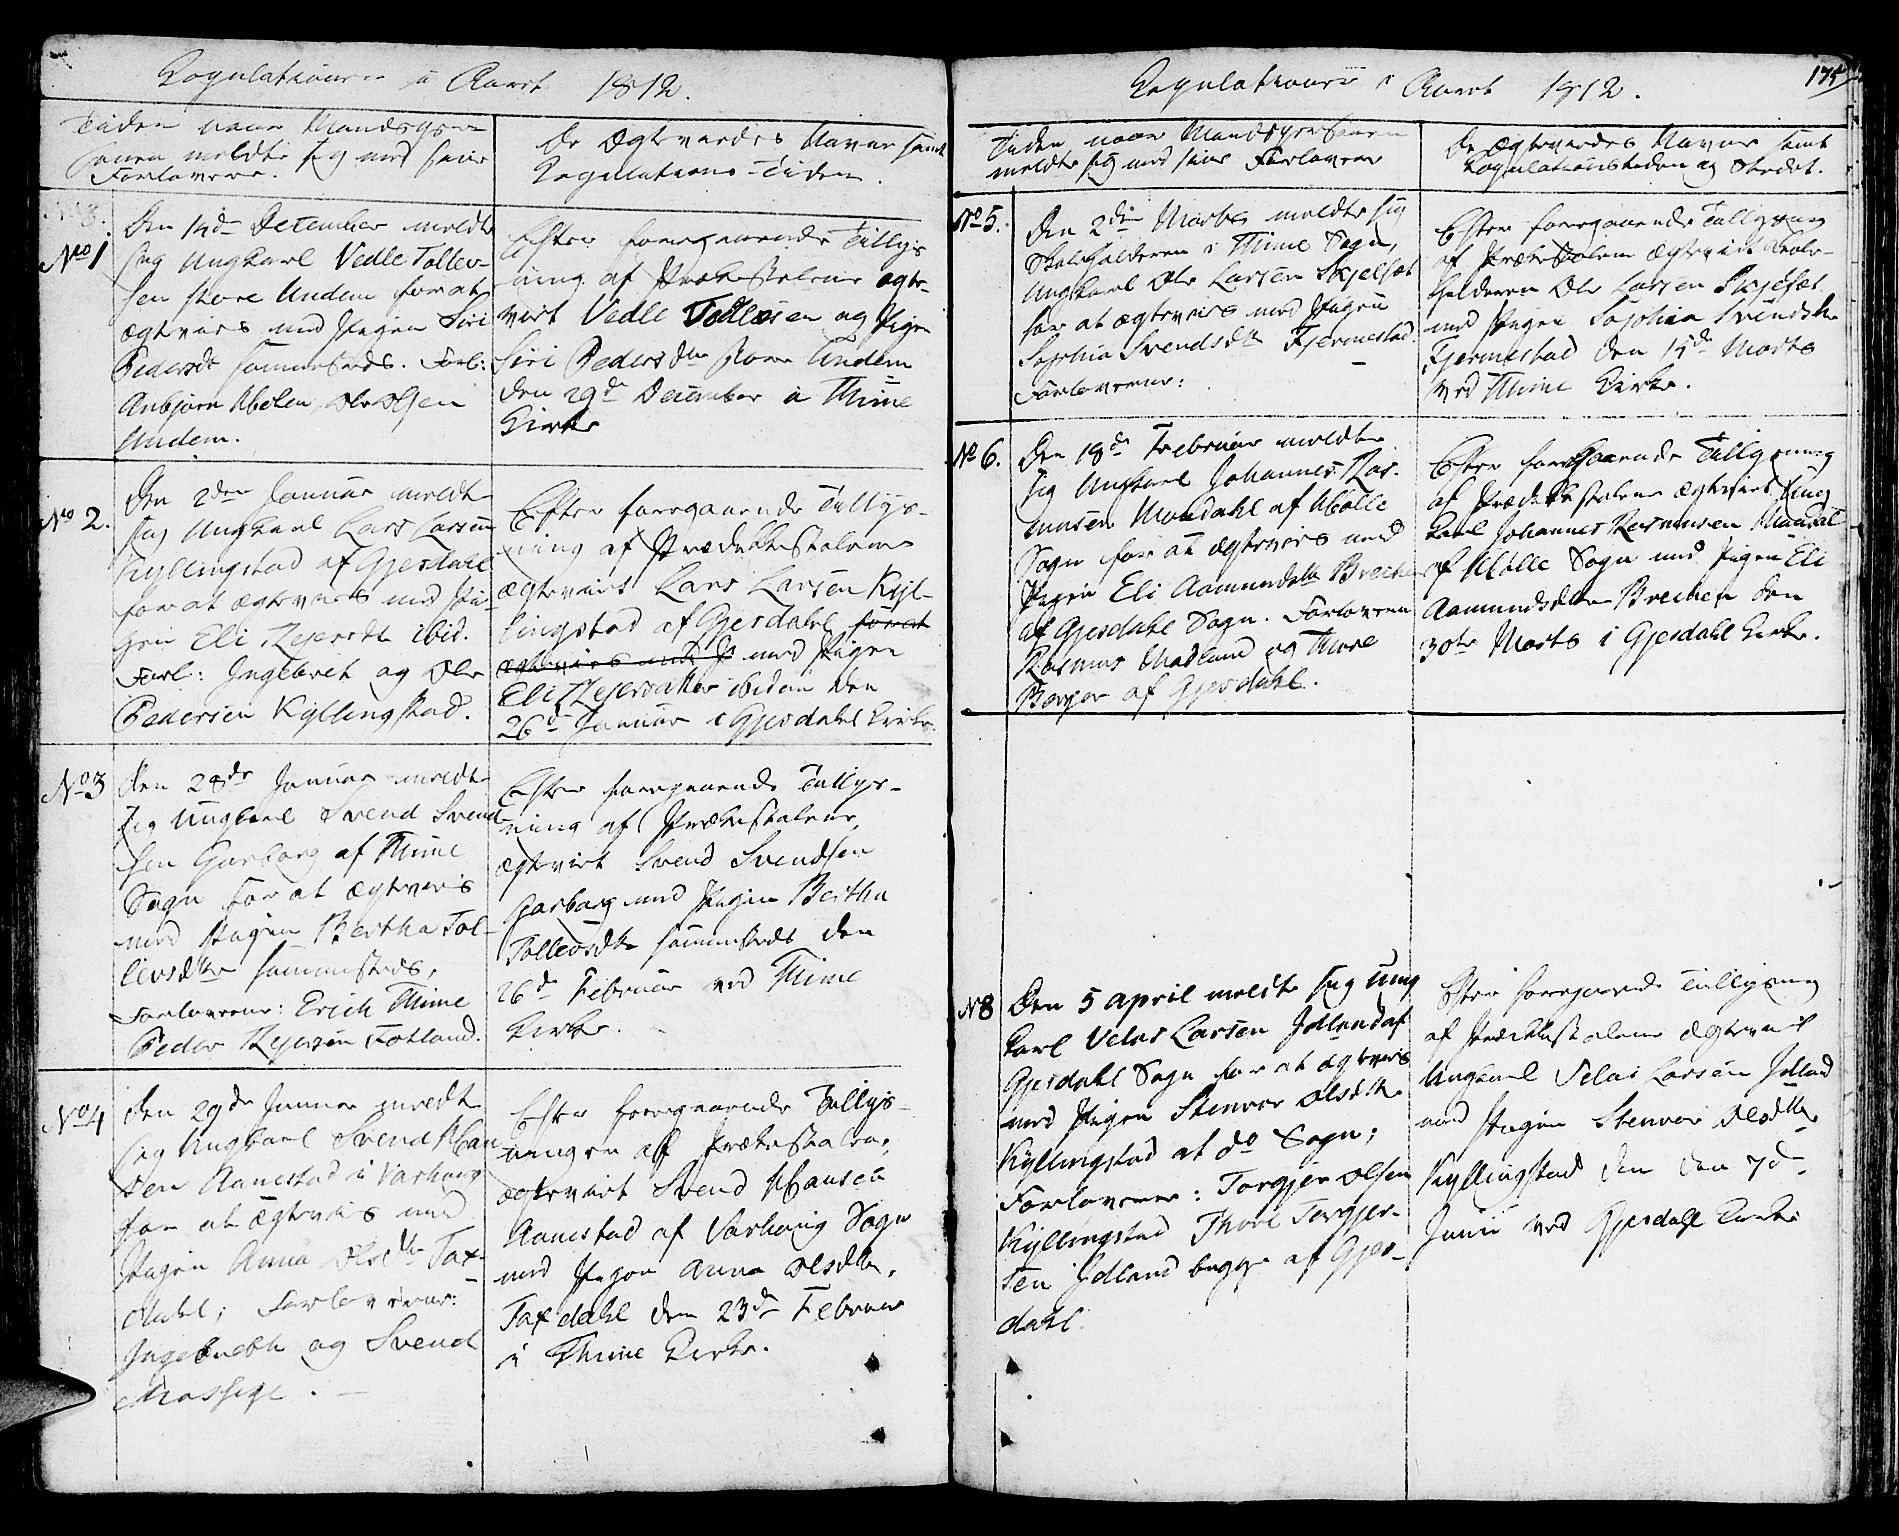 Copulationer i Aaret 1812.
Tiden naar Mandsper-
sonen meldte sig med sine
Forlovere.
De Ægteviedes Navne samt
Copulations-Tiden.
No 1
Den 14de December meldte
sig Ungkarl Vedle Tollev-
sen store Undem for at
ægtevies med Pigen Siri
Pedersdtr sammesteds. Forl:
Anbjørn Ole Olsen
Undem.
Efter foregaaende Tillys-
ning af Prækestolene ægte-
viet Vedle Tollevsen og Pigen
Siri Pedersdtr store Undem
den 29de December i Thime
Kirke
No 2.
Den 2den Januar meldte
sig Ungkarl Lars Larsen
Kyllingstad af Gjesdahl
for at ægtevies med Pi-
gen Eli Rejersdtr ibid.
Forl: Ingebret og Ole
Pedersen Kyllingstad.
Efter foregaaende Tillys-
ning af Prædikestolene
ægteviet Lars Larsen Kyl-
lingstad af Gjesdahl for at
ægtevies med P med Pigen
Eli Rejersdatter ibidem den
26de Januar i Gjesdahl Kirke.
No 3
Den 28de Januar meldte
sig Ungkarl Svend Svend-
sen Garborg af Thime
Sogn for at ægtevies
med Pigen Bertha Tol-
levsdtr sammesteds,
Forloverne: Erich Thime
Peder Rejersen Fotland.
Efter foregaaende Tillys-
ning af Prækestolene,
ægteviet Svend Svendsen
Garborg med Pigen Bertha
Tollevsdtr sammesteds den
26de Februar ved Thime
Kirke.
No 4
Den 29de Januar meldte
sig Ungkarl Svend Han-
sen Aanestad i Varhaug
for at ægtevies med
Pigen Anna Olsdtr Tax-
dahl; Forloverne:
Ingebreth og Svend
Mossige.
Efter foregaaende Tillys-
ningen af Prækestolen,
ægteviet Svend Hansen
Aanestad af Varhaug Sogn
med Pigen Anna Olsdtr,
Taxdahl den 23de Februar
i Thime Kirke.
175
Copulationer i Aaret 1812.
Tiden naar Mandspersonen
meldte sig med sine Forlovere
De Ægteviedes Navne samt
Copulationstiden og Stedet.
No 5.
Den 2den Marts meldte sig
Skoleholderen i Thime Sogn,
Ungkarl Ole Larsen Skjelset
for at ægtevies med Pigen
Sophia Svendsdtr Fjermestad.
Forloverne:
Efter foregaaende Tillysning
af Prækestolen ægteviet Skole-
holderen Ole Larsen Skjelset
med Pigen Sophia Svendsdtr
Fjermestad den 15de Marts
ved Thime Kirke.
No 6.
Den 18de Februar meldte
sig Ungkarl Johannes Ras-
musen Maudahl af Hølle
Sogn for at ægtevies med
Pigen Eli Aamundsdtr Brechen
af Gjesdahl Sogn. Forlovere
Rasmus Madland og Thore
Berge af Gjesdahl.
Efter foregaaende Tillysning
af Prædikkestolene ægtevies Ung
karl Johannes Rasmusen Maudal
af Hølle Sogn med Pigen Eli
Aamundsdtr Brechen den
30te Marts i Gjesdahl Kirke.
N 8
Den 5 April meldte sig Ung
karl Velas Larsen Idland af
Gjesdahl Sogn for at ægtevies
med Pigen Stenvor Olsdtr
Kyllingstad af do Sogn;
Forloverne: Torgjer Olsen
Kyllingstad Thore Torgjer-
sen Idland begge af Gjes-
dahl.
Efter foregaaende Tillysning
af Prædikestolene ægteviet
Ungkarl Velas Larsen Idland
med Pigen Stenvor Olsdtr
Kyllingstad den den 7de
Junii ved Gjesdahl Kirke